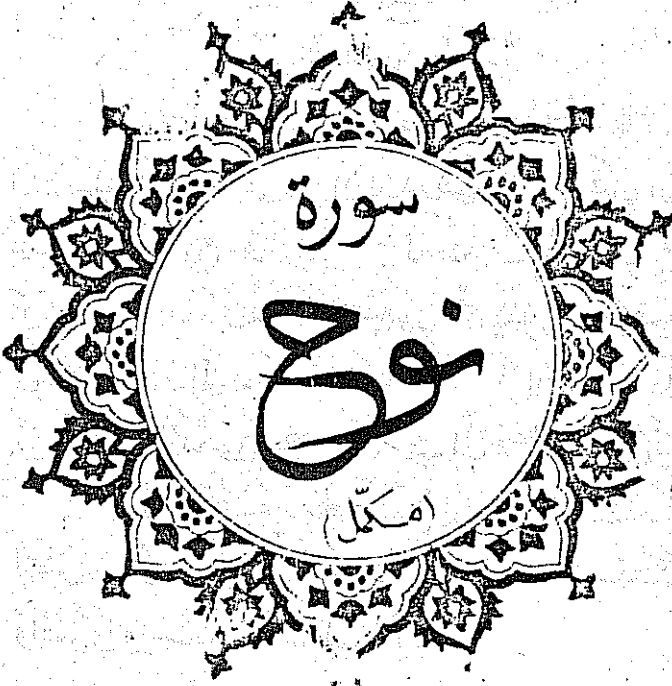 سورة
نوح
(مکمّل)